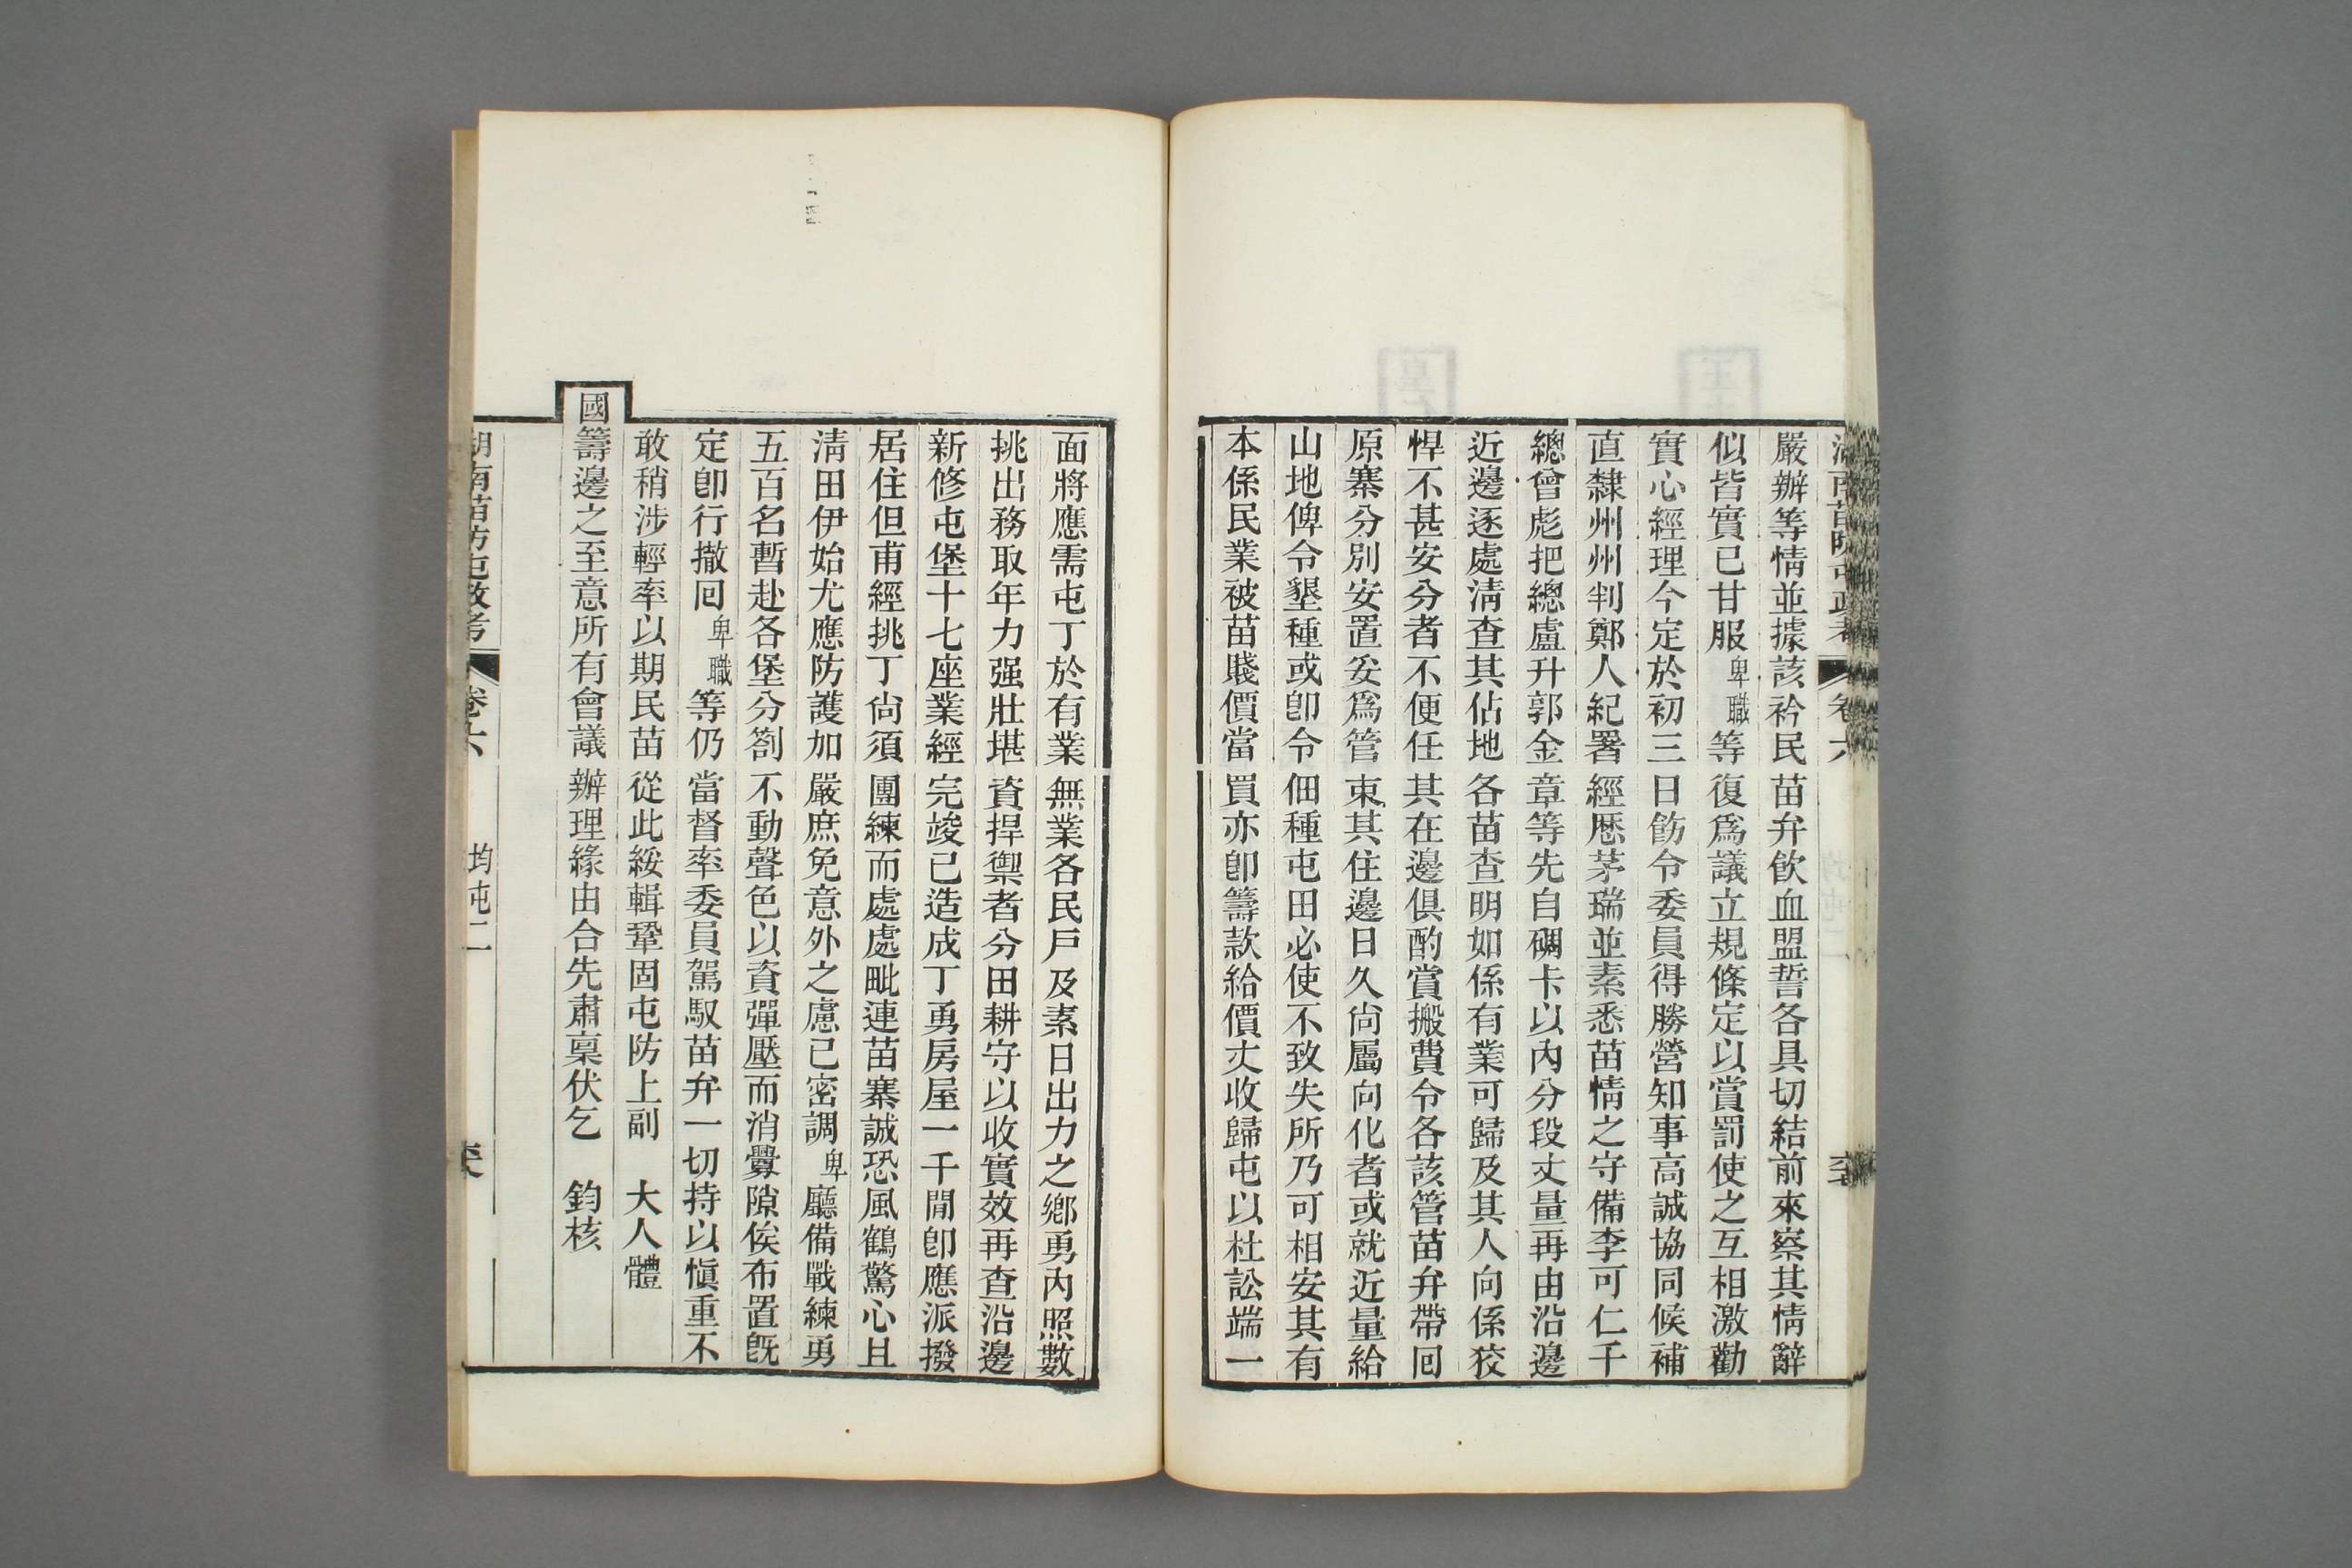 嚴辦等情並據該衿民苗弁飲血盟誓各具切結前來察其情辭
似皆實已甘服卑職等復爲議立規條定以賞罰使之互相激勸
實心經理今定於初三日飭令委員得勝營知事高誠協同候補
直隸州州判鄭人紀署經厯茅瑞並素悉苗情之守備李可仁千
總曾彪把總盧升郭金章等先自碉卡以內分段丈量再由沿邊
近邊逐處淸查其佔地各苗查明如係有業可歸及其人向係狡
悍不甚安分者不便任其在邊俱酌賞搬費令各該管苗弁帶囘
原寨分別安置妥爲管束其住邊日久尙屬向化者或就近量給
山地俾令墾種或卽令佃種屯田必使不致失所乃可相安其有
本係民業被苗賤價當買亦卽籌款給價丈收歸屯以杜訟端一
面將應需屯丁於有業無業各民戶及素日出力之鄉勇內照數
挑出務取年力强壯堪資捍禦者分田耕守以收實效再查沿邊
新修屯堡十七座業經完竣已造成丁勇房屋一千間卽應派撥
居住但甫經挑丁尙須團練而處處毗連苗寨誠恐風鶴驚心且
淸田伊始尤應防護加嚴庶免意外之慮已密調卑廳備戰練勇
五百名暫赴各堡分劄不動聲色以資彈壓而消釁隙俟布置旣
定卽行撤囘卑職等仍當督率委員駕馭苗弁一切持以愼重不
敢稍涉輕率以期民苗從此綏輯鞏固屯防上副 大人體
國籌邊之至意所有會議辦理緣由合先肅稟伏乞 鈞核
湖南苗防屯政考 卷六 均屯二